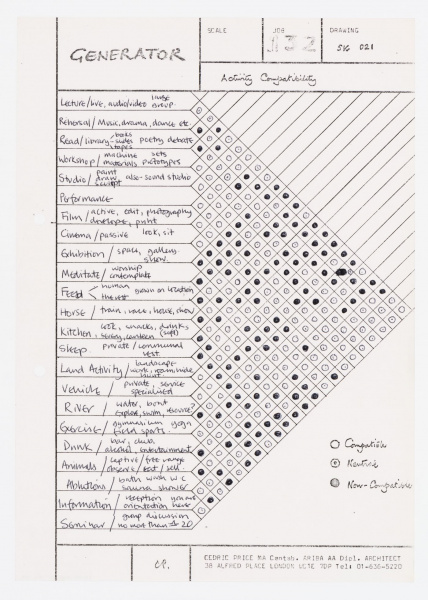 GENERATOR
SCALE
JOB
132
DRAWING
SK 021
Activity Compatibility
Lecture/live, audio/video large group
Rehersal/Music, drama, dance etc.
Read/library books tapes poetry debate
Workshop/machine sets
materials prototypes
Studio/paint draw also-sound studio
Performance
Film/active, edit, photography
develope, print
Cinema/passive look, sit
Exhibition/space, gallery
show
Meditate/worship
contemplate
Feed human grown on location
Horse/train, race, house, show
Kitchen, cook, snacks, drinks,
canteen (soft)
Sleep private/communal
rest
Land Activity/landscape
work,
Vehicle/private, service
specialised
River/water, boat
explore, swim,
Exercise/gymnasium yoga
field sports
Drink/bar, club,
alcohol, entertainment
Animals/captive/free range
observe/eat/sell
Ablutions/bath wash w.c
sauna shower
Information/reception you are
orientation here
Seminar/group discussion
no more than 20
Compatible
Neutral
Non-Compatible
CP.
CEDRIC PRICE MA Cantab. ARIBA AA Dipl. ARCHITECT
38 ALFRED PLACE LONDON WC1E 7DP Tel: 01-636-5220